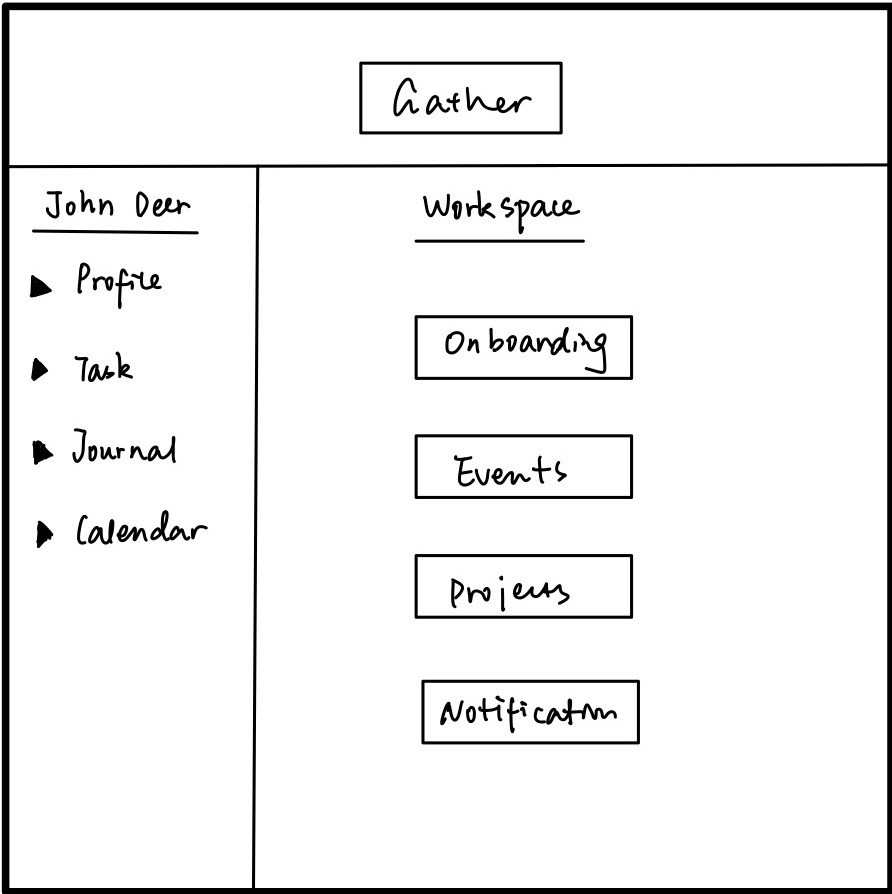 Gather
John Deer
Profile
Task
Journal
Calendar
Workspace
Onboarding
Events
Projects
Notification